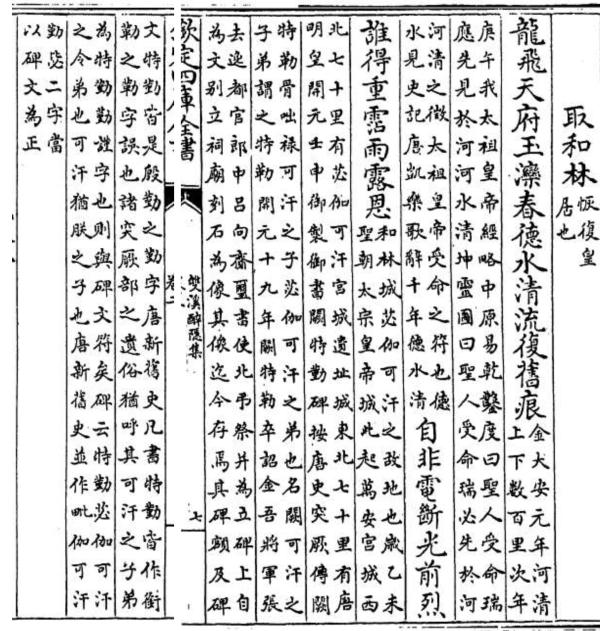 取和林恢復皇
居也
龍飛天府玉灤春德水清流復舊痕金大安元年河清
上下數百里次年
庚午我太祖皇帝經略中原易乾鑿度曰聖人受命瑞
應先見於河河水清坤靈圖曰聖人受命瑞必先於河
河清之徵太祖皇帝受命之符也德
水見史記唐凱樂歌辭千年德水清
自非電斷光前烈
誰得重霑雨露恩
和林城苾伽可汗之故地也歲乙未
聖朝太宗皇帝城此起萬安宮城西
北七十里有苾伽可汗宮城遺址城東北七十里有唐
明皇開元壬申御製御書闕特勤碑按唐史突厥傳闕
特勒骨咄祿可汗之子苾伽可汗之弟也名闕可汗之
子弟謂之特勒開元十九年闕特勒卒詔金吾將軍張
去逸都官郎中呂向齎璽書使北弔祭并為五碑上自
為文別立祠廟刻石為像其像迄今存焉其碑額及碑
欽定四庫全書
雙溪醉隱集
卷二
七
文特勤皆是殷勤之勤字唐新舊史凡書特勤皆作銜
勒之勒字誤也諸突厥部之遺俗猶呼其可汗之子弟
為特勤勤謹字也則與碑文符矣碑云特勤苾伽可汗
之令弟也可汗猶朕之子也唐新舊史並作毗伽可汗
勤苾二字當
以碑文為正